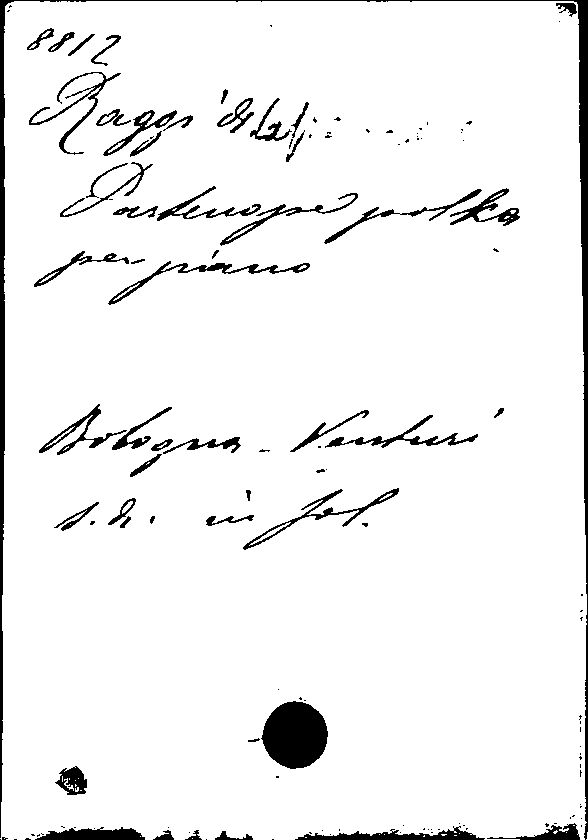 8812
Raggi
Partenope polka
per piano
Bologna - Venturi
s. d. in fol.